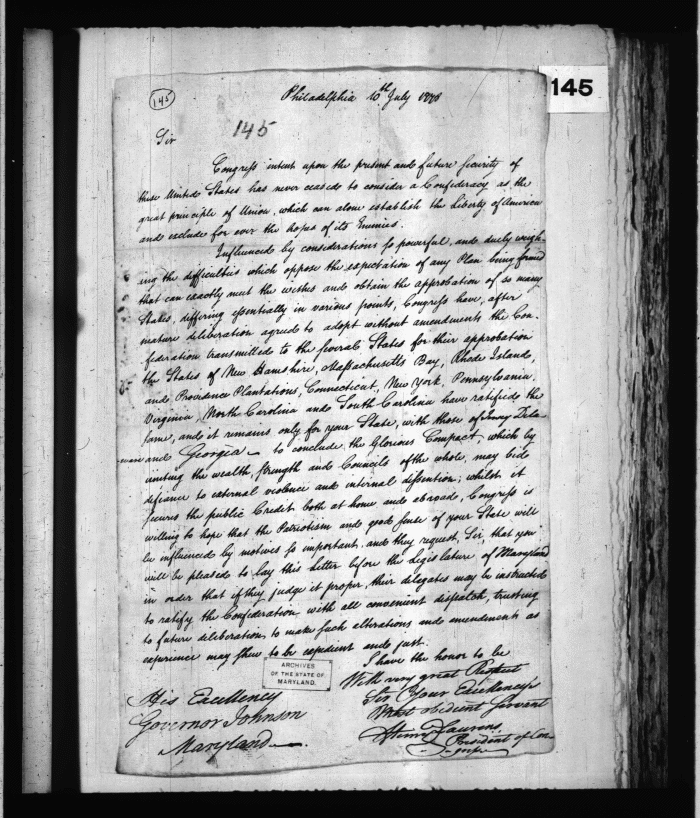 145
145
Philadelphia 10th July 1778
145
Sir
Congress intent upon the present and future Security of
these United States has never ceased to consider a Confederacy as the
great principle of Union, which can alone establish the Liberty of America
and exclude for ever the hopes of its Enemies.
Influenced by considerations so powerful, and duely weigh-
ing the difficulties which oppose the expectation of any Plan being formed
that can exactly meet the wishes and obtain the approbation of so many
States, differing essentially in various points, Congress have, after
mature deliberation agreed to adopt without amendments the Con-
federation transmitted to the several States for their approbation
the States of New Hamshire, Massachusetts Bay, Rhode Island,
and Providence Plantations, Connecticut, New York, Pennsylvania,
Virginia, North Carolina and South Carolina have ratified the
same, and it remains only for your State, with those of Jersey Dela
-ware and Georgia to conclude the Glorious Compact, which by
uniting the wealth, strength and Councils of the whole, may bid
defiance to external violence and internal dissention; whilst it
secures the public Credit both at home and abroad, Congress is
willing to hope that the Patriotism and good sense of your State will
be influenced by motives so important, and they request, Sir, that you
will be pleased to lay this Letter before the Legislature of Maryland
in order that if they judge it proper, their delegates may be instructed
to ratify the Confederation with all convenient dispatch, trusting
to future deliberation to make such alterations and amendments as
experience may shew to be expedient and just.
I have the honor to be
With very great Respect
Sir Your Excellencys
Most obedient Servant
Henry Laurens
President of Con
gress
ARCHIVES
OF THE STATE OF
MARYLAND.
His Excellency
Governor Johnson
Maryland